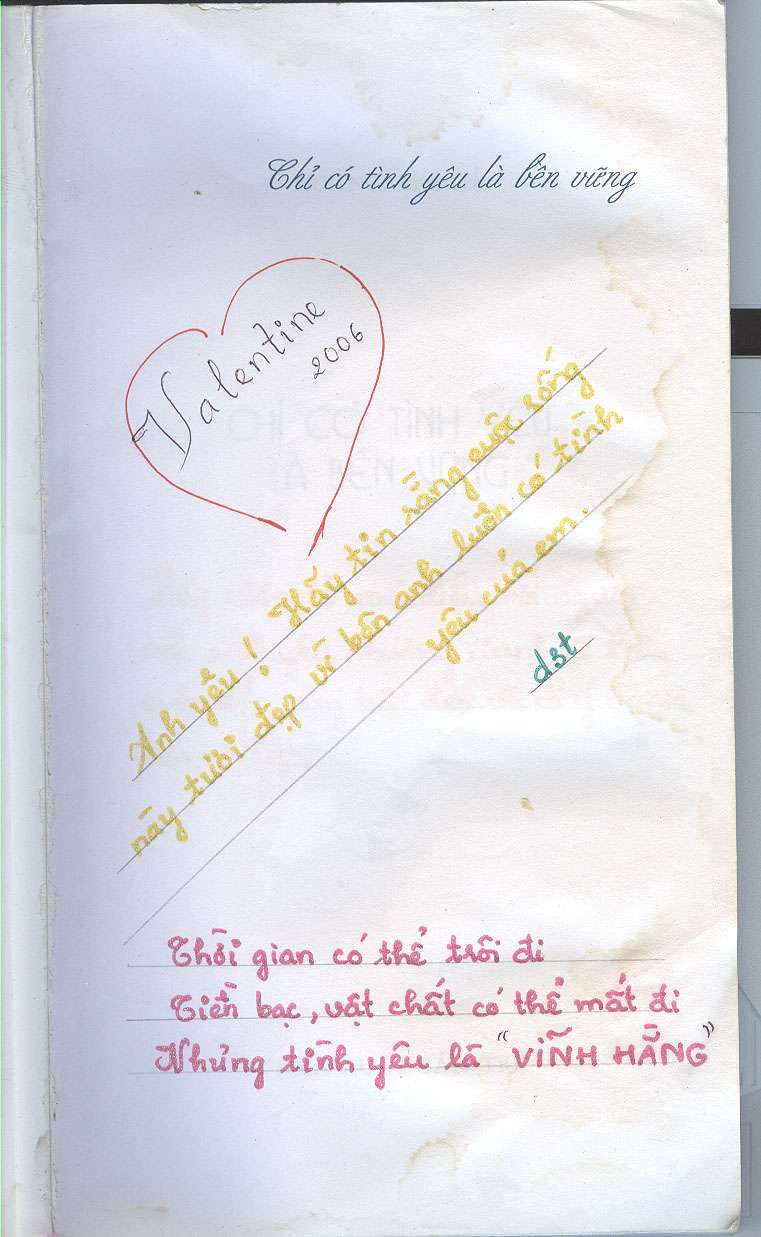 Chỉ có tình yêu là bền vững
Valentine
2006
CHỈ CÓ TÌNH YÊU
LÀ BỀN VỮNG
Anh yêu! Hãy tin rằng cuộc sống
này tươi đẹp vì bên anh luôn có tình
yêu của em.
dst
Thời gian có thể trôi đi
Tiền bạc, vật chất có thể mất đi
Nhưng tình yêu là "VĨNH HẰNG"